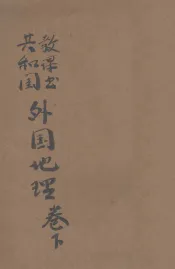 共和国
教课书
外国地理卷下